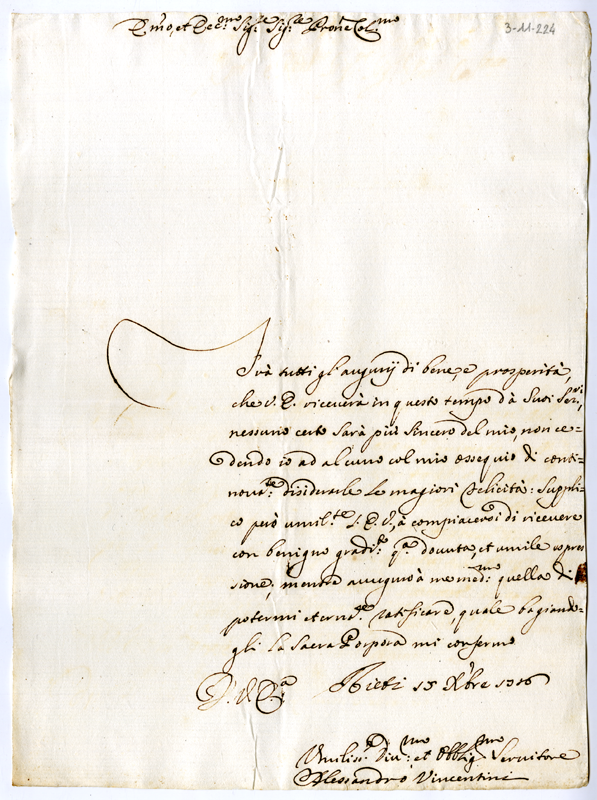 E.mo, et R.mo Sig.r Sig.r Prone Col.mo
3-11-224
Frà tutti gl'augurij di bene, e prosperità,
che V. E. riceverà in questo tempo dà Suoi Ser.ri
nessuno certo sarà più sincero del mio, non ce=
dendo io ad alcuno col mio ossequio di conti=
nova.te disiderarle le magiori felicità: suppli=
co però umil.te l'E. V., à compiacersi di ricevere
con benigno gradi.to q.a dovuta, et umile espres
sione; mentre auguro à me med.mo quella di
potermi eterna.te ratificare, quale bagiando=
gli la Sacra Porpora mi confermo
D. V. E.a Rieti 15 Xbre 1716
Umilis.o Div.mo et Obblig.mo Servitore
Alessandro Vincentini